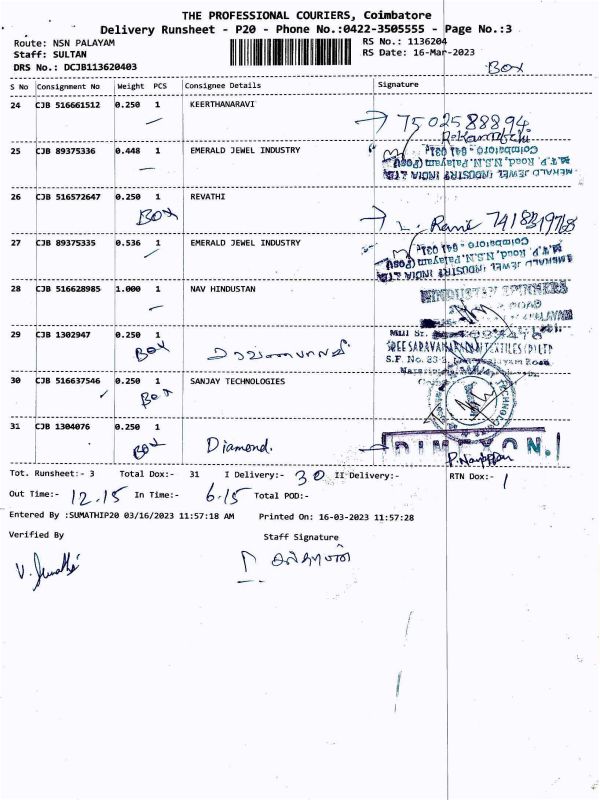 THE PROFESSIONAL COURIERS, Coimbatore
Delivery Runsheet - P20 - Phone No.:0422-3505555 - Page No.:3
Route: NSN PALAYAM RS No.: 1136204
Staff: SULTAN RS Date: 16-Mar-2023
DRS No.: DCJB113620403 BOX
S No Consignment No Weight PCS Consignee Details Signature
24 CJB 516661512 0.250 1 KEERTHANARAVI
7502588894
25 CJB 89375336 0.448 1 EMERALD JEWEL INDUSTRY
Coimbatore - 641 031.
M.T.P. Road, N.S.N. Palayam (Post)
EMERALD JEWEL INDUSTRY INDIA LTD
26 CJB 516572647 0.250 1 REVATHI
BOX
27 CJB 89375335 0.536 1 EMERALD JEWEL INDUSTRY
Coimbatore - 641 031.
M.T.P. Road, N.S.N. Palayam (Post)
EMERALD JEWEL INDUSTRY INDIA LTD
28 CJB 516628985 1.000 1 NAV HINDUSTAN
HINDUSTAN SPINNERS
ROAD
29 CJB 1302947 0.250 1
BOX
S.F. No.
30 CJB 516637546 0.250 1 SANJAY TECHNOLOGIES
BOX
31 CJB 1304076 0.250 1
BOX Diamond.
Tot. Runsheet:- 3 Total Dox:- 31 I Delivery:- 30 II Delivery:- RTN Dox:- 1
Out Time:- 12.15 In Time:- 6.15 Total POD:-
Entered By :SUMATHIP20 03/16/2023 11:57:18 AM Printed On: 16-03-2023 11:57:28
Verified By Staff Signature